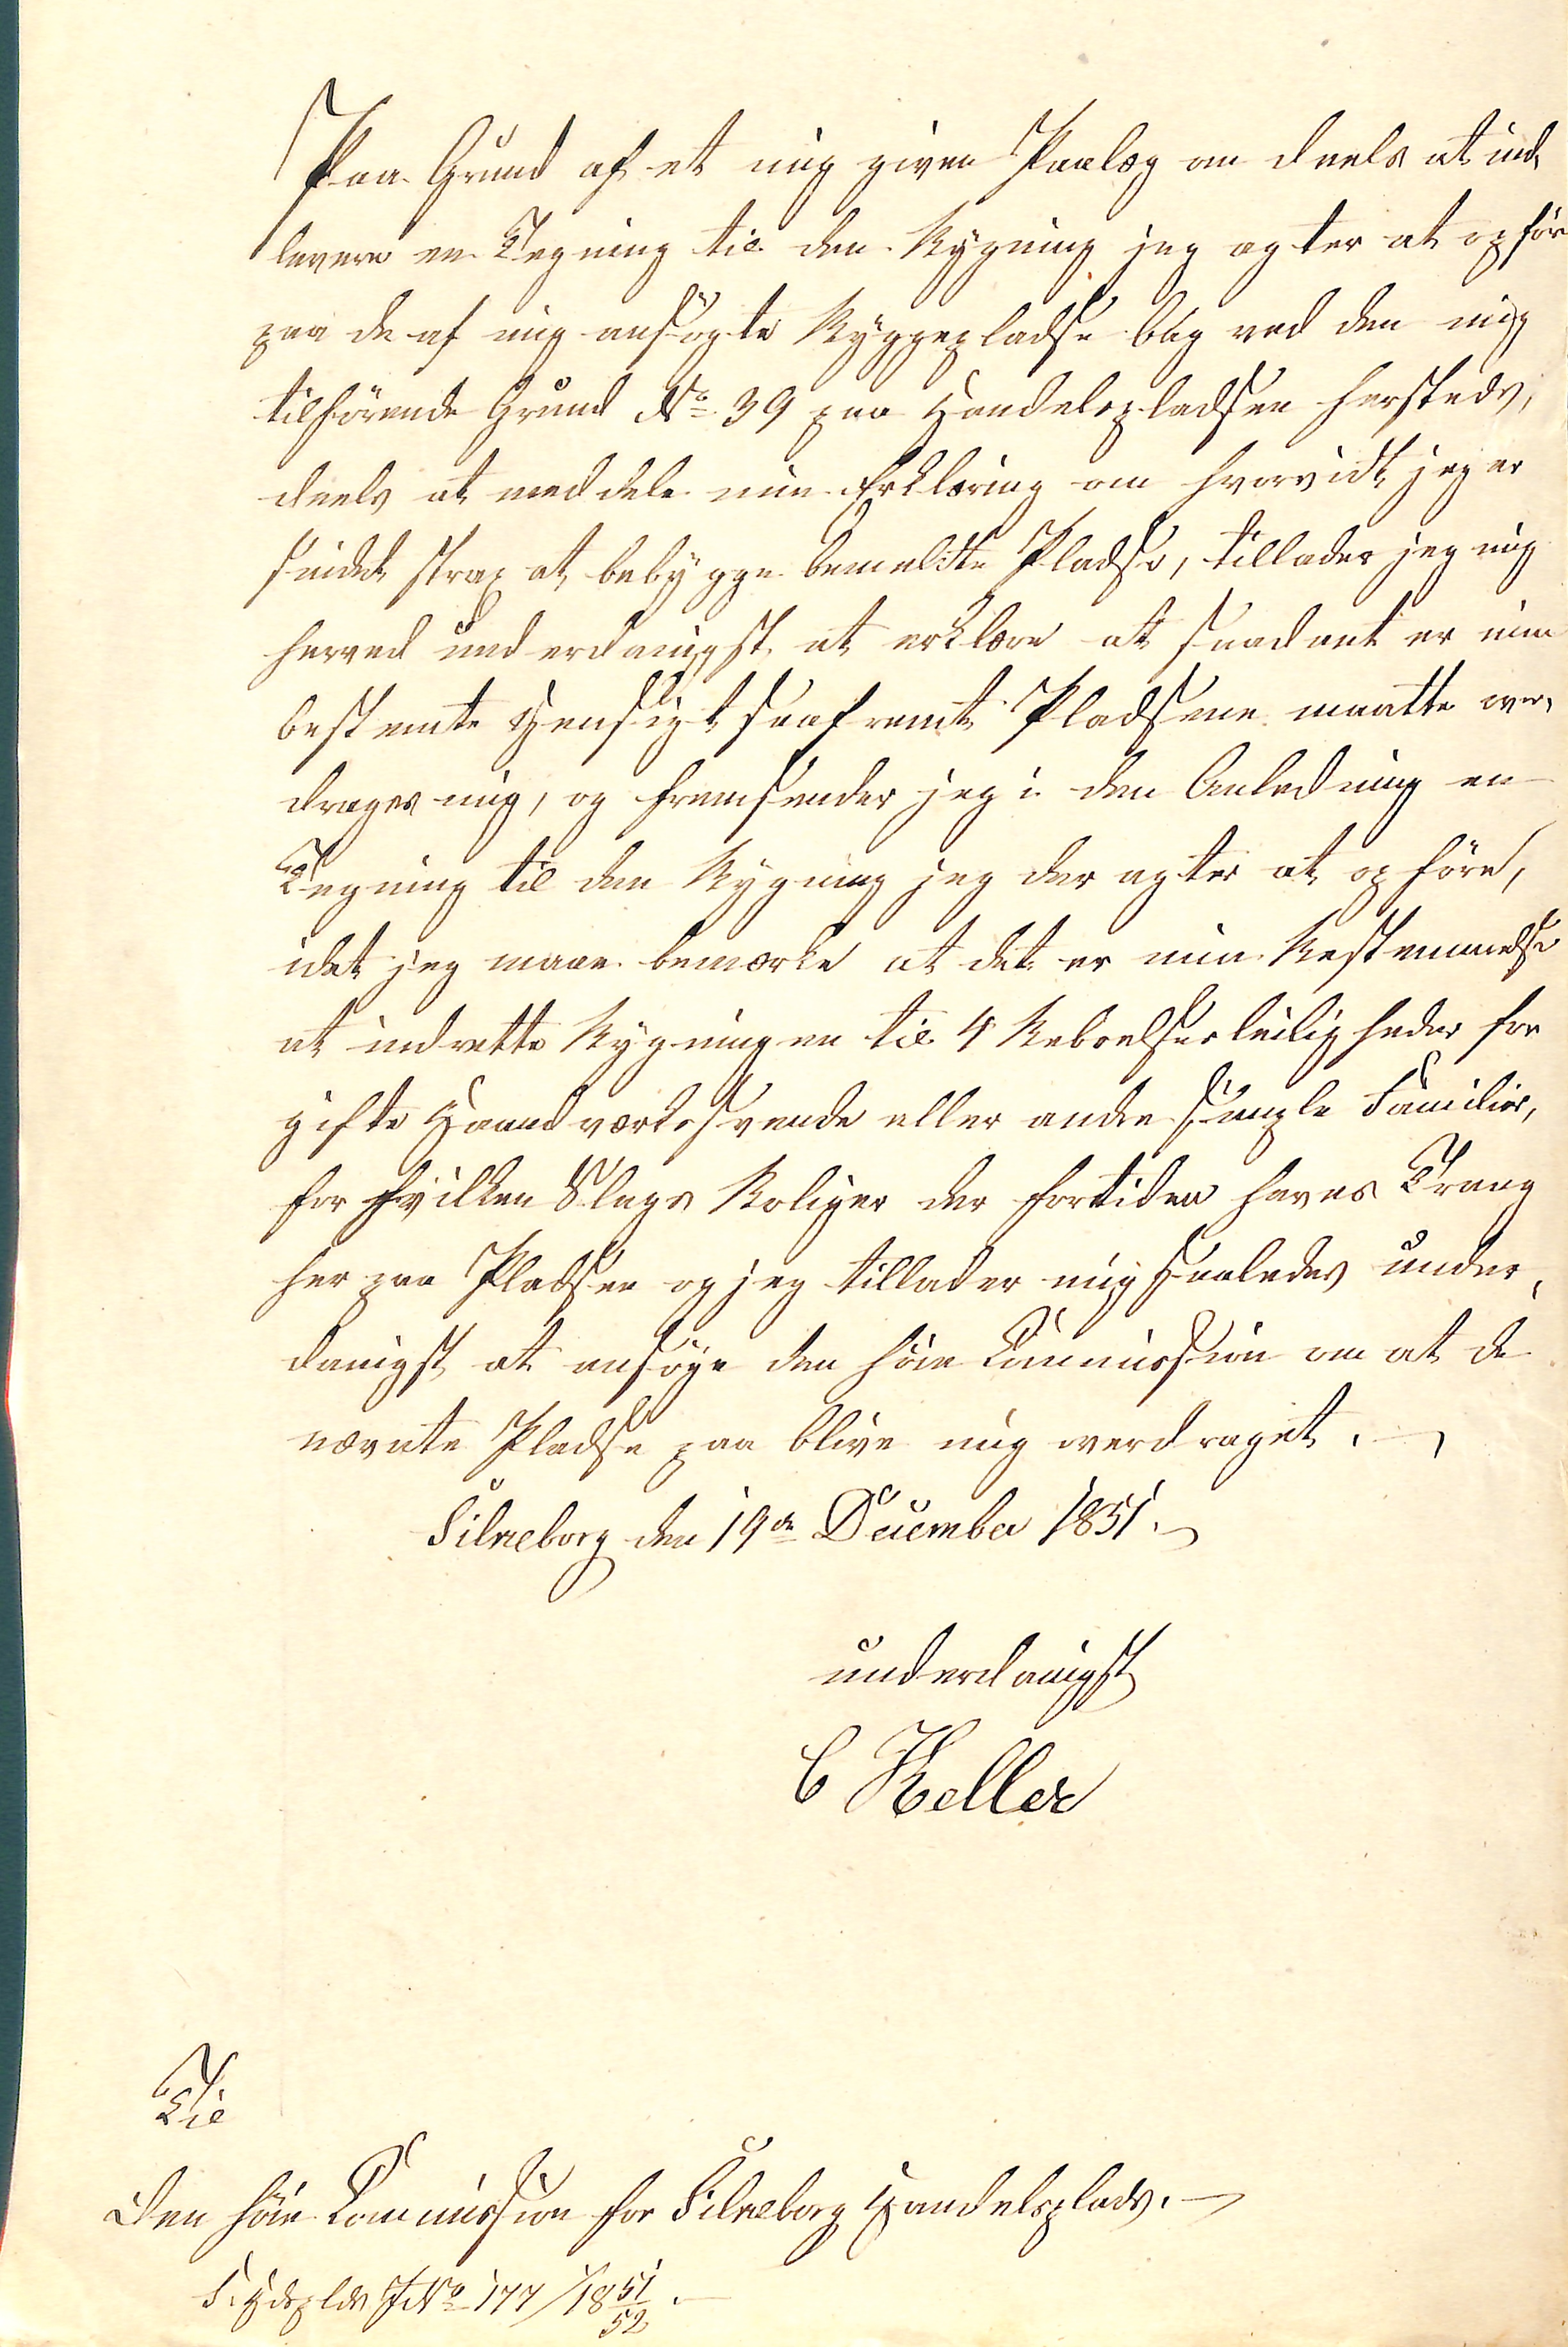 Paa Grund af et mig given Paalæg om deels at ind,
levere en Tegning til den Bygning jeg agter at opføre
paa de af mig ansøgte Byggepladse bag ved den mig
tilhørende Grund No 39 paa Handelspladsen hersteds,
deels at meddele min Erklæring om hvorvidt jeg er
sindet strax at bebygge bemeldte Pladse, tillader jeg mig
herved underdanigst at erklære at saadant er min
bestemte Hensigt saafremt Pladsene maatte over,
drages mig, og fremsender jeg i den Anledning en
Tegning til den Bygning jeg der agter at opføre,
idet jeg maae bemærke at det er min Bestemmelse
at indrette Bygningen til 4 Beboelsesleiligheder for
gifte Haandværkssvende eller andre simple Familier,
for hvilken Slags Boliger der fortiden haves Trang
her paa Pladsen og jeg tillader mig saaledes under,
danigst at ansøge den høie Commission om at de
nævnte Pladse paa blive mig overdraget.
Silkeborg den 19de December 1851.
underdanigst
C Keller
Til
Den høie Commission for Silkeborg Handelsplads.
S. Hdsplds J No 177/18 51/52.